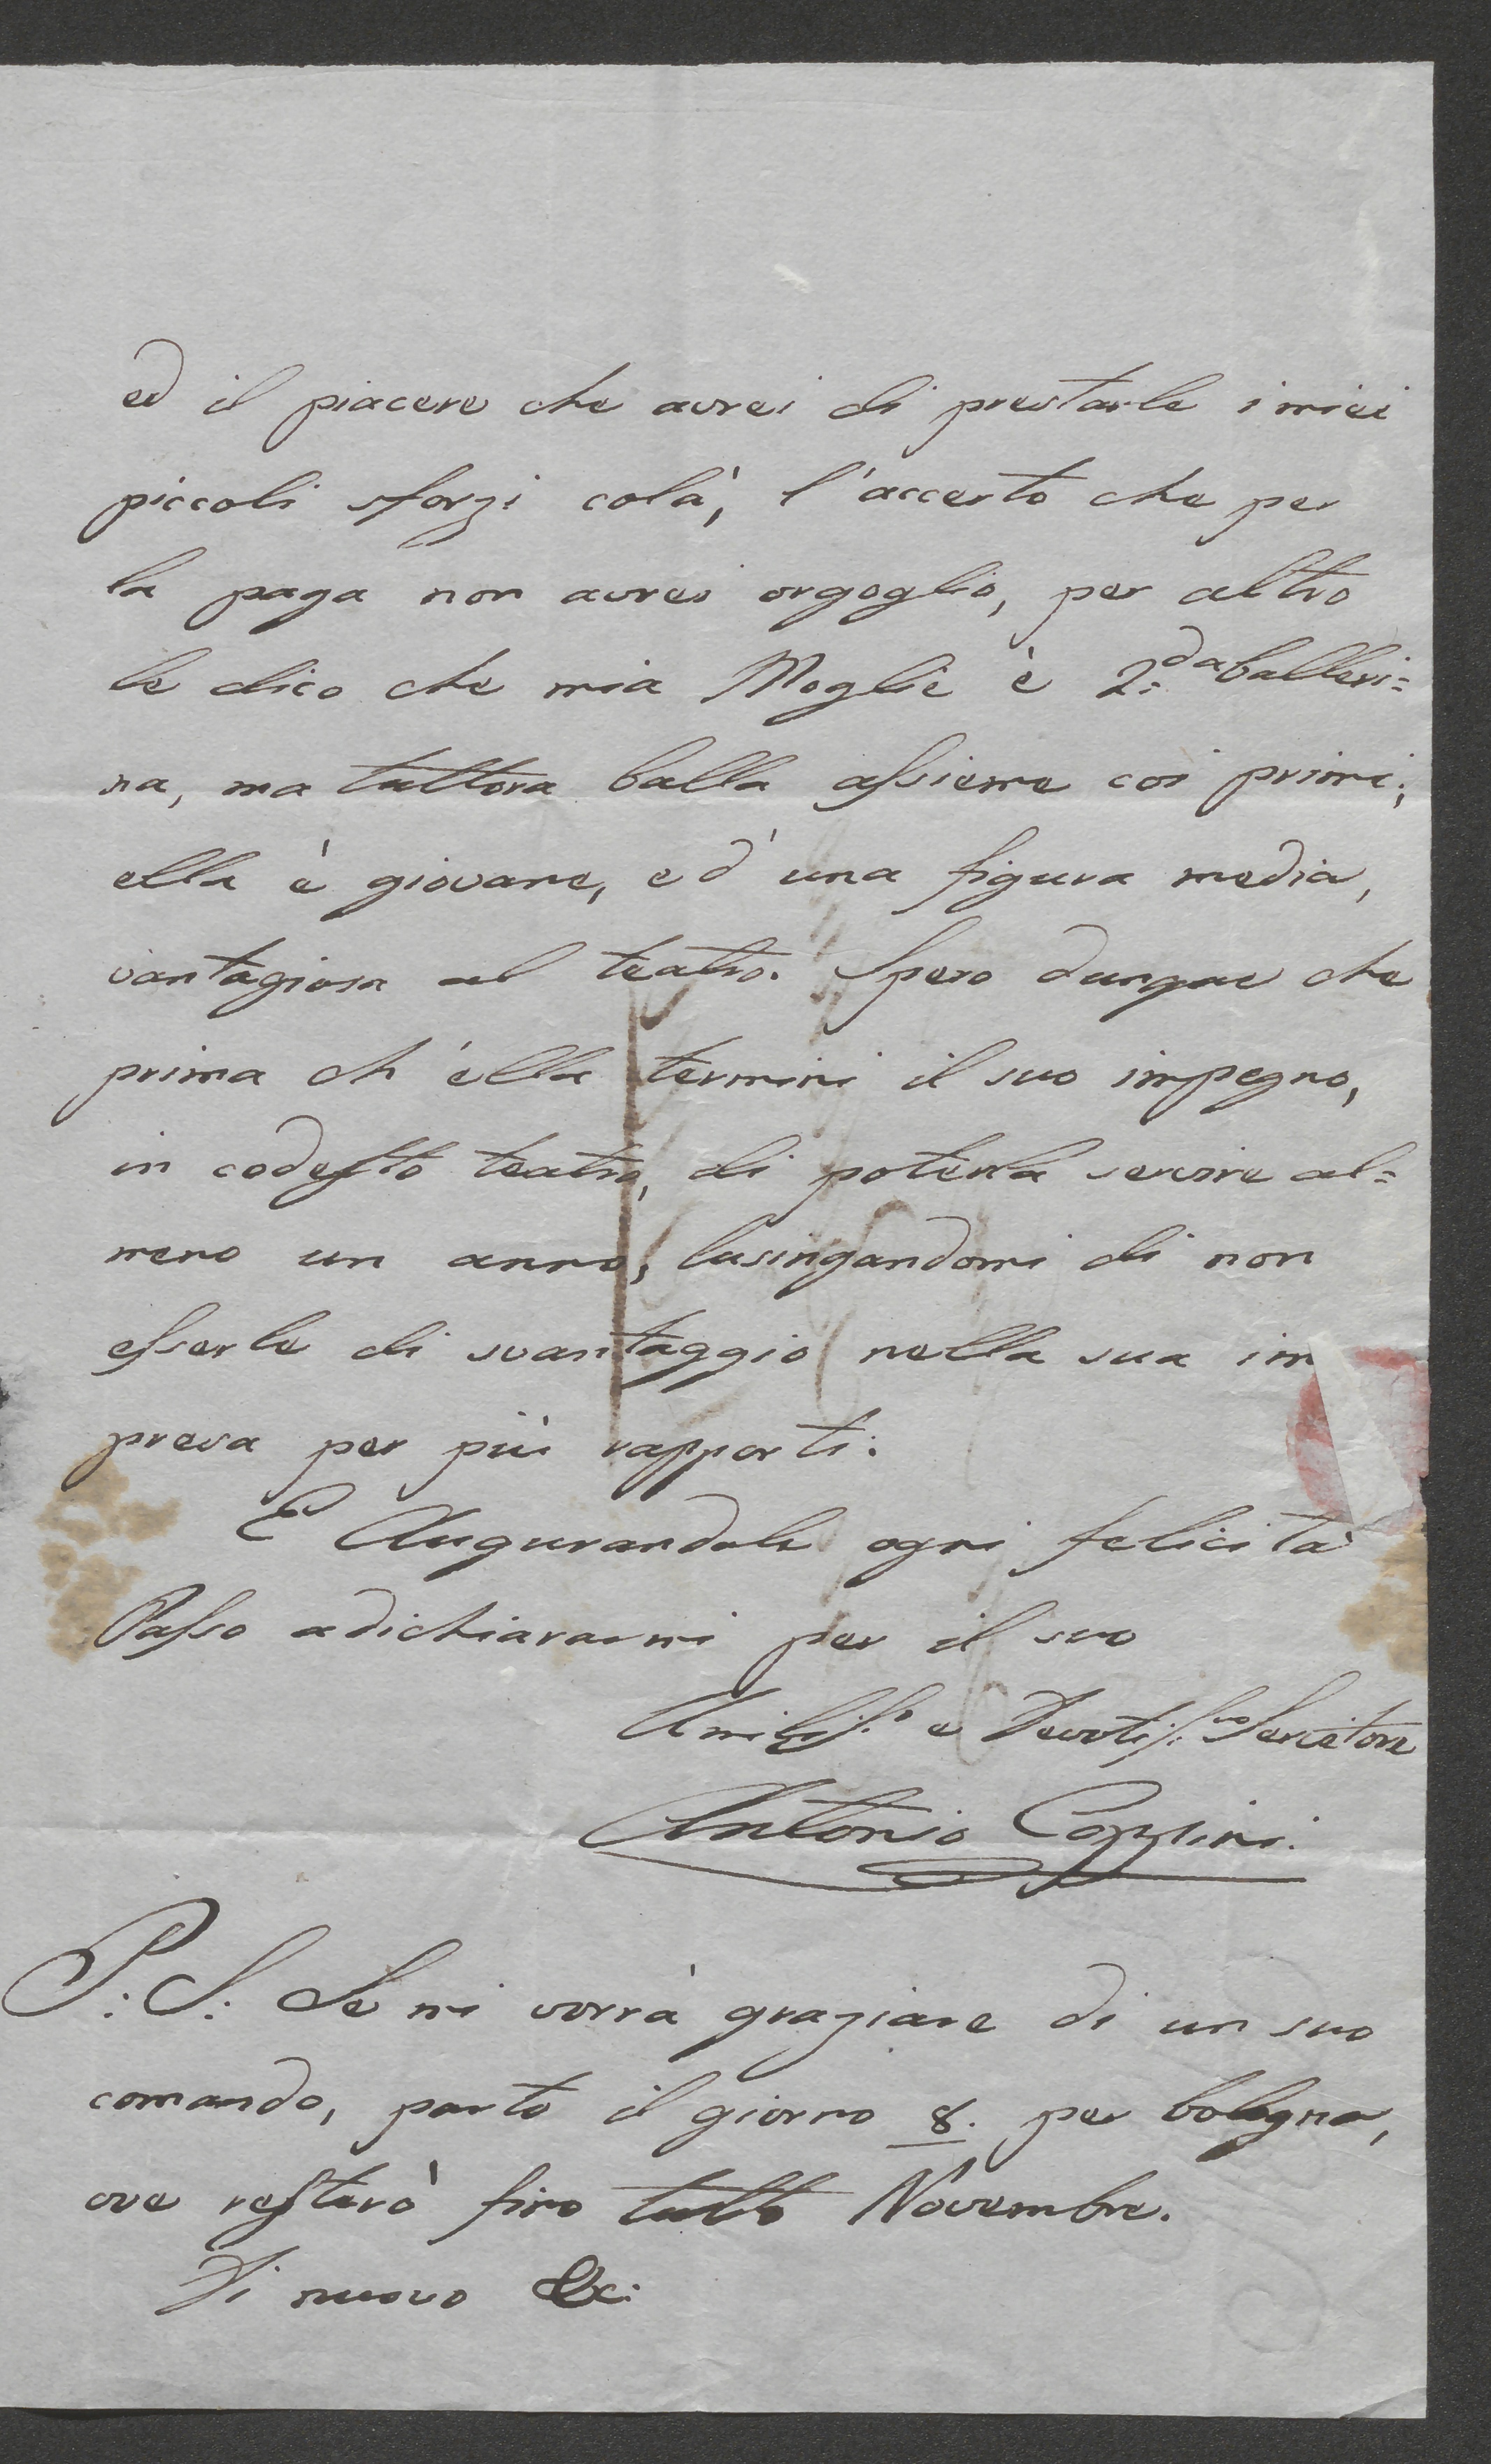 ed il piacere che avrei di prestarle i miei
piccoli sforzi colà, l'accerto che per
la paga non avrei orgoglio, per altro
le dico che mia Moglie è 2.da balleri=
na, ma tuttora balla assieme coi primi;
ella è giovane, ed' una figura media,
vantagiosa al teatro. Spero dunque che
prima ch'ella termini il suo impegno,
in codesto teatro, di poterla servire al=
meno un anno, lusingandomi di non
esserle di svantaggio nella sua im
presa per più rapporti.
E Augurandole ogni felicità
Passo a dichiararmi per il suo
Umiliss.o e Devotiss.mo Servitore
Antonio Coppini.
P: S: Se mi vorrà graziare di un suo
comando, parto il giorno 8. per bologna,
ove resterò fino tutto Novembre.
Di nuovo &c: